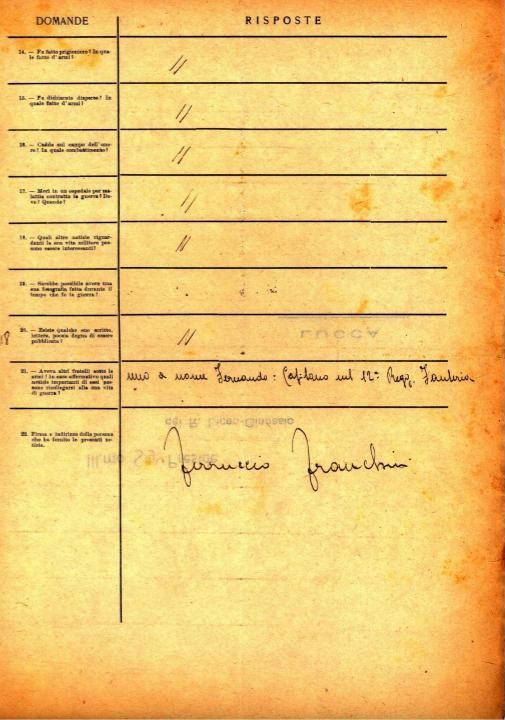 DOMANDE RISPOSTE
14. — Fu fatto prigioniero? In qua-
le fatto d'armi?
//
15. — Fu dichiarato disperso? In
quale fatto d'armi?
//
16. — Cadde sul campo dell'ono-
re? In quale combattimento?
//
17. — Morì in un ospedale per ma-
lattia contratta in guerra? Do-
ve? Quando?
//
18. — Quali altre notizie riguar-
danti la sua vita militare pos-
sono essere interessanti?
//
19. — Sarebbe possibile avere una
sua fotografia fatta durante il
tempo che fu in guerra?
20. — Esiste qualche suo scritto,
lettera, poesia degna di essere
pubblicata?
//
LUCCA
21. — Aveva altri fratelli sotto le
armi? In caso affermativo quali
notizie importanti di essi pos-
sono ricollegarsi alla sua vita
di guerra?
uno a nome Fernando: Capitano nel 12° Regg. Fanteria
del R. Liceo-Ginnasio
22. Firma e indirizzo della persona
che ha fornito le presenti no-
tizie.
Ill.mo Sig. Preside
Ferruccio Franchini